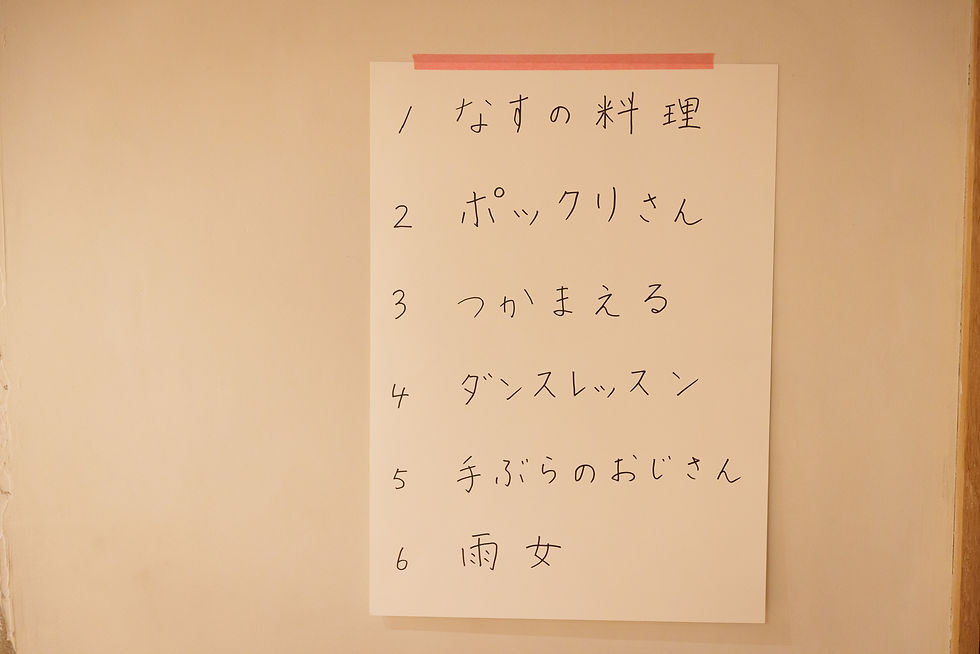 1 なすの料理
2 ポックリさん
3 つかまえる
4 ダンスレッスン
5 手ぶらのおじさん
6 雨女